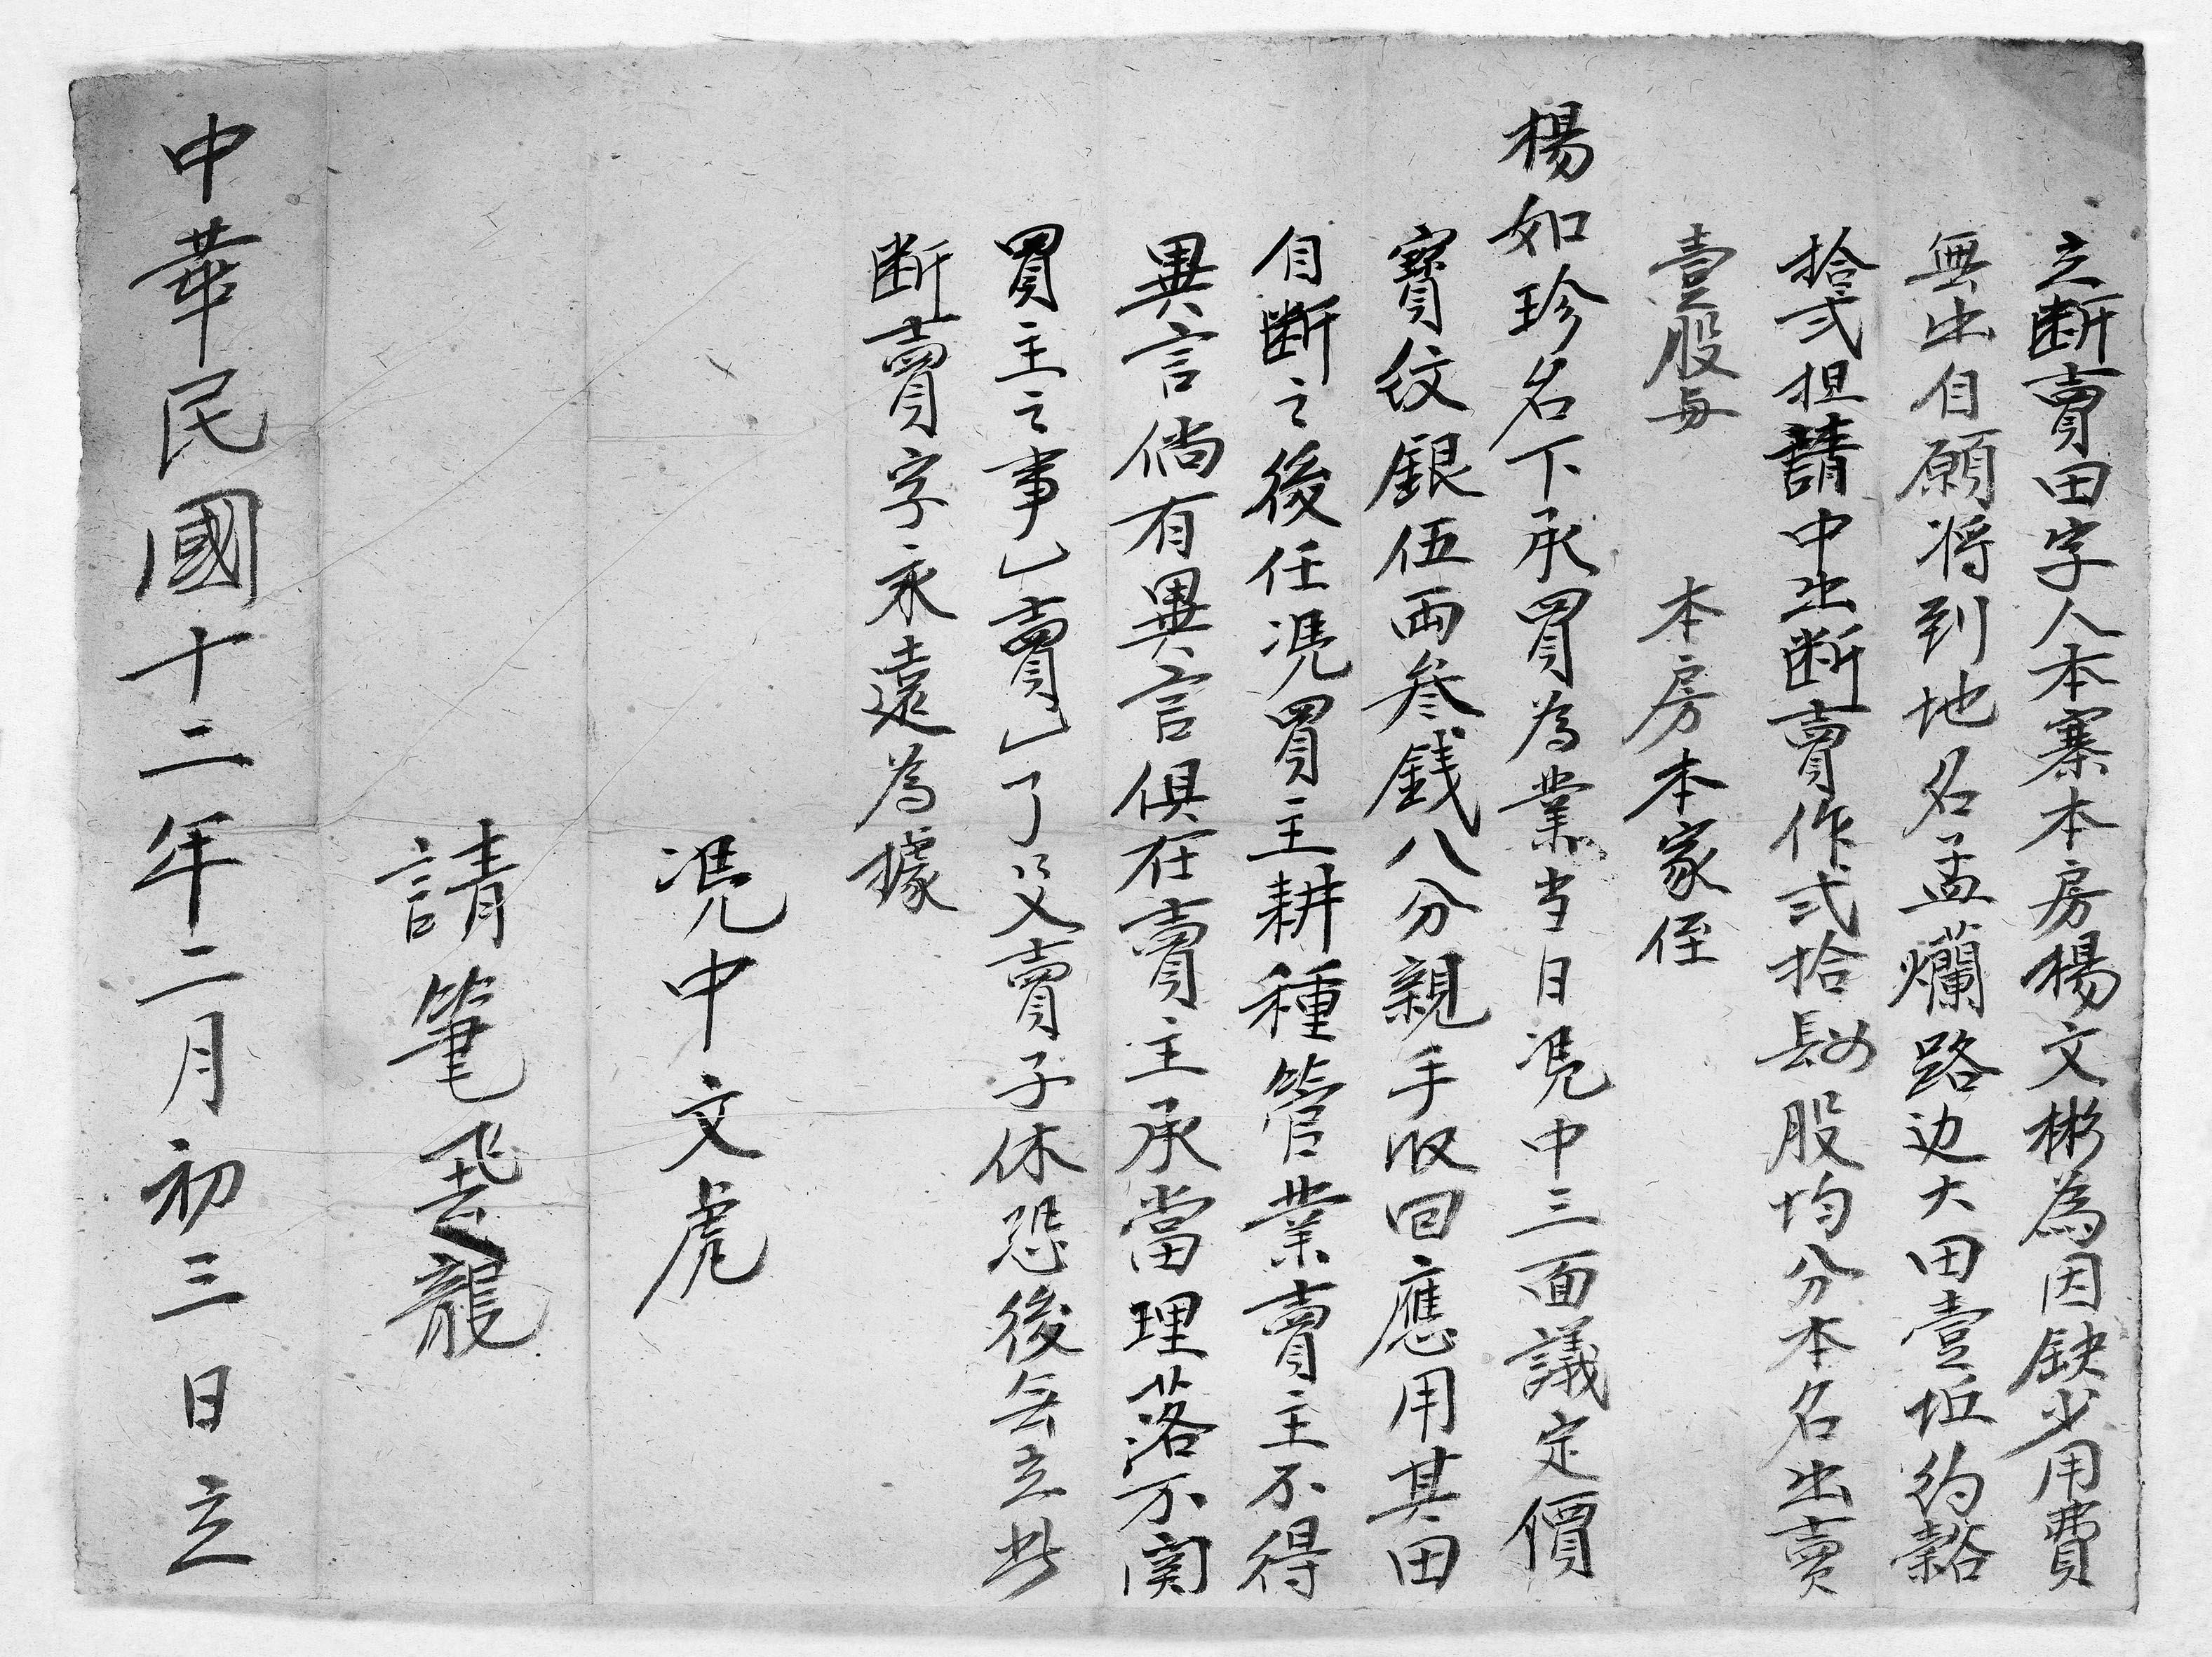 立断賣田字人本寨本房楊文彬為因缺少用費
無出自願将到地名孟爛路边大田壹坵約谿
拾弍担請中出断賣作弍拾肆股均分本名出賣
壹股每 本房本家侄
楊如珍名下承買為業当日凴中三面議定價
寶紋銀伍両叁銭八分親手収回應用其田
自断之後任凴買主耕種管業賣主不得
異言倘有異言俱在賣主承當理落不関
買主之事乚賣乚了父賣子休恐後無立此
断賣字永遠為據
凴中文虎
請筆飛龍
中華民國十二年二月初三日立